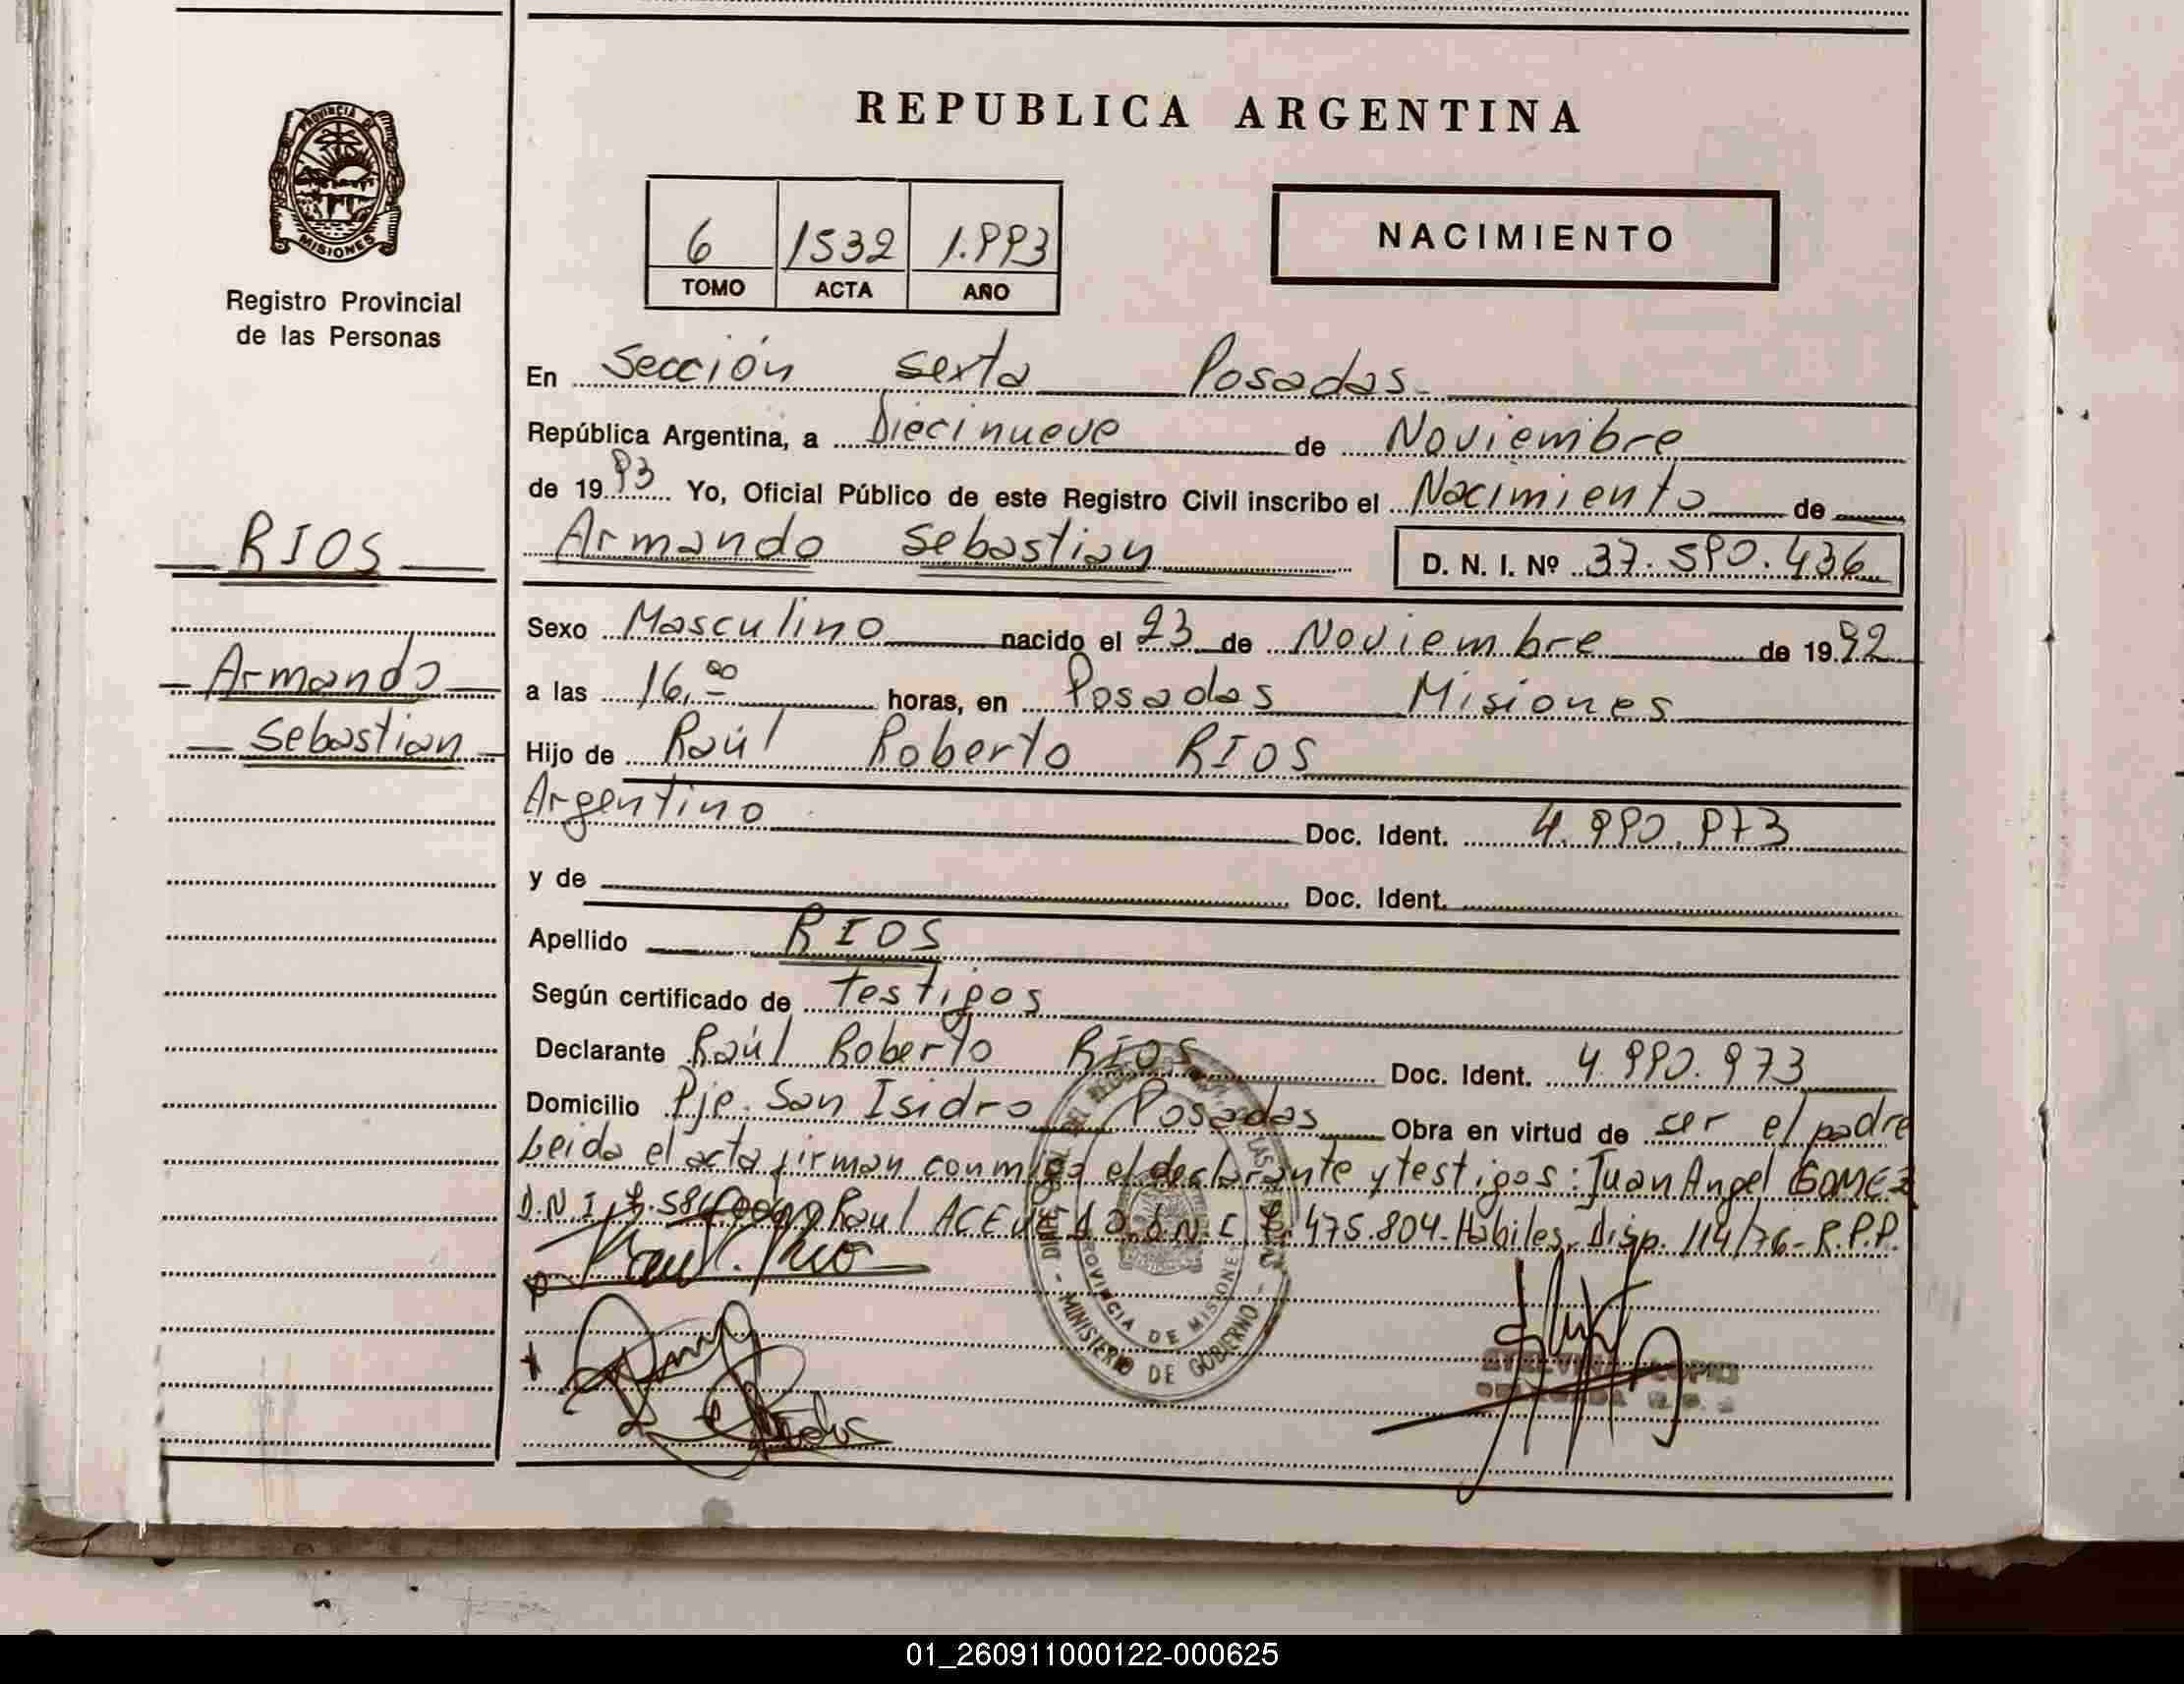 REPUBLICA ARGENTINA
PROVINCIA DE
MISIONES
Registro Provincial
de las Personas
6 1532 1.993
TOMO ACTA AÑO
NACIMIENTO
En Sección sexta Posadas
República Argentina, a Diecinueve de Noviembre
de 1993 Yo, Oficial Público de este Registro Civil inscribo el Nacimiento de
RIOS
Armando Sebastian D. N. I. Nº 37.590.436
Sexo Masculino nacido el 23 de Noviembre de 1992
Armando
a las 16,00 horas, en Posadas Misiones
Sebastian
Hijo de Raúl Roberto RIOS
Argentino Doc. Ident. 4.990.973
y de Doc. Ident.
Apellido RIOS
Según certificado de testigos
Declarante Raúl Roberto RIOS Doc. Ident. 4.990.973
Domicilio Pje. San Isidro Posadas Obra en virtud de ser el padre
Leida el acta firman conmigo el declarante y testigos: Juan Angel GOMEZ
D.N.I. Raul ACEVEDO D.N.I. 475.804-Habiles, Disp. 114/76-R.P.P.
PROVINCIA DE MISIONES
MINISTERIO DE GOBIERNO
01_260911000122-000625